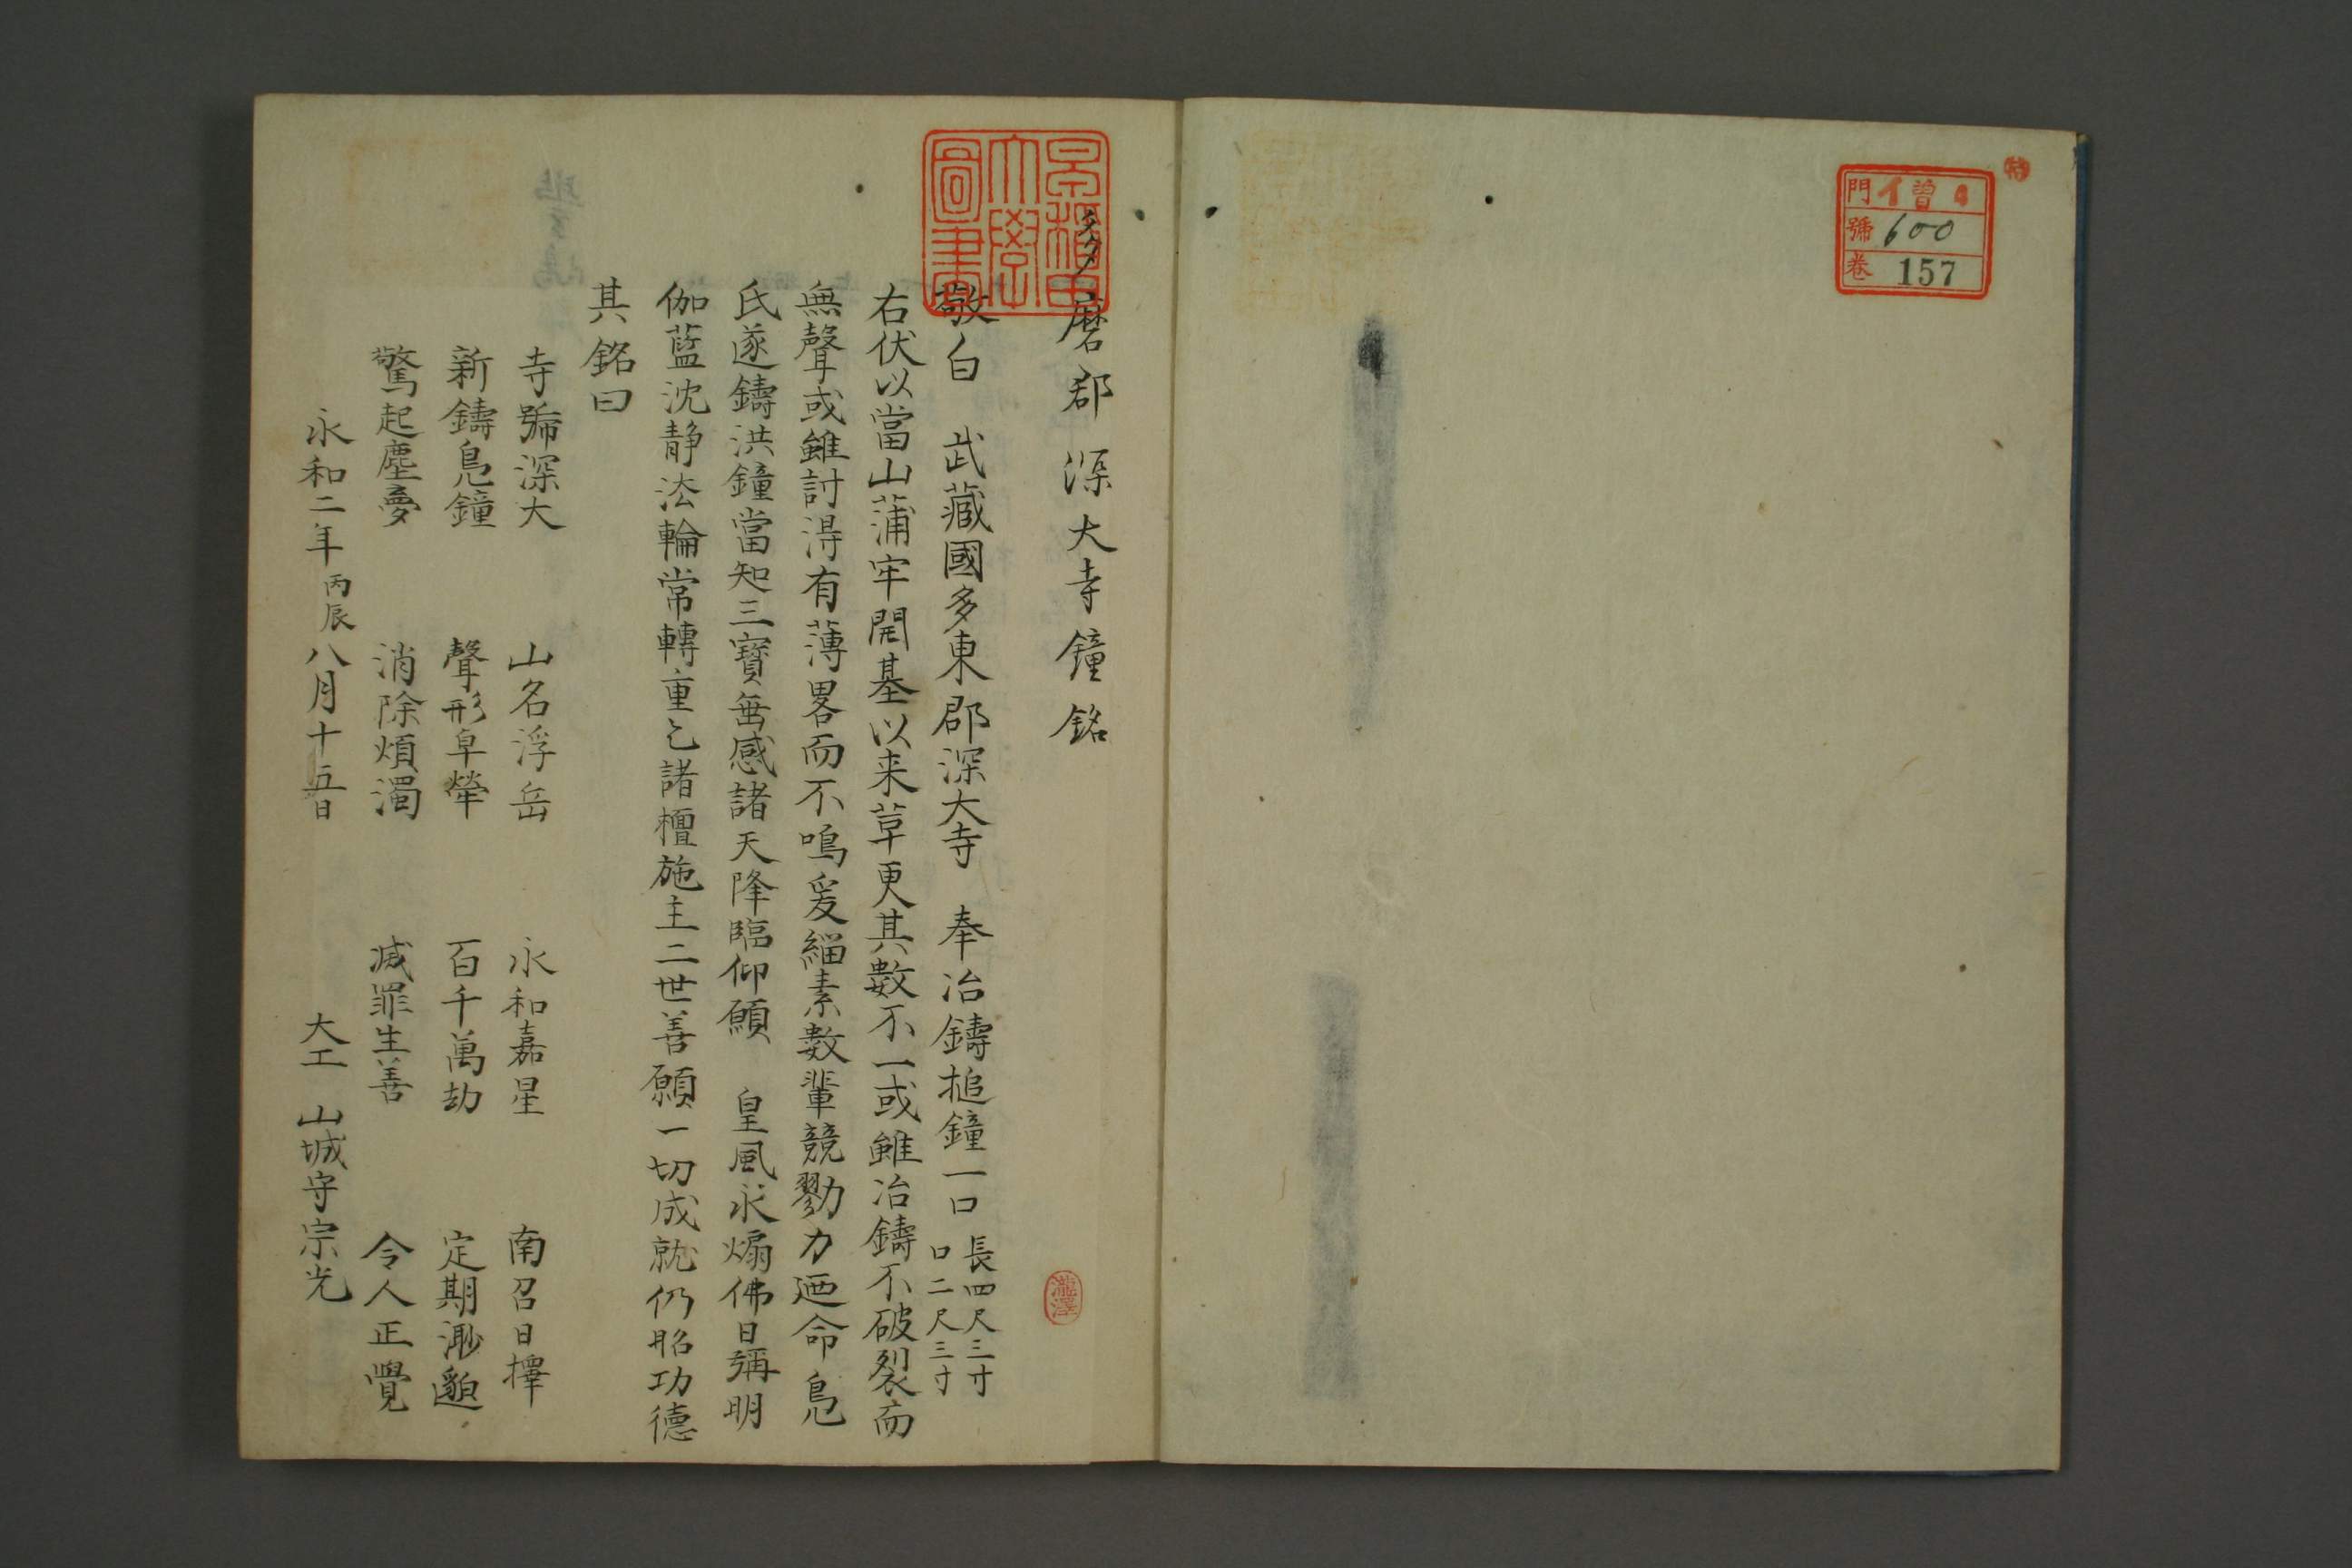 特
門 イ 曽 4
號 600
卷 157
多磨郡深大寺鐘銘
敬白 武藏國多東郡深大寺 奉冶鑄搥鐘一口 長四尺三寸 口二尺三寸
右伏以當山蒲牢開基以来草更其數不一或雖冶鑄不破裂而
無聲或雖討淂有薄畧而不鳴爰緇素數輩競勠力廼命鳧
氏遂鑄洪鐘當知三寳垂感諸天降臨仰願 皇風永煽佛日彌明
伽藍沈静法輪常轉重乞諸檀施主二世善願一切成就仍昭功德
其銘曰
寺號深大 山名浮岳 永和嘉星 南呂日擇
新鑄鳧鐘 聲形皐犖 百千萬劫 定期渺邈
驚起塵夢 消除煩濁 滅罪生善 令人正覺
永和二年丙辰八月十五日 大工 山城守宗光
瀧澤